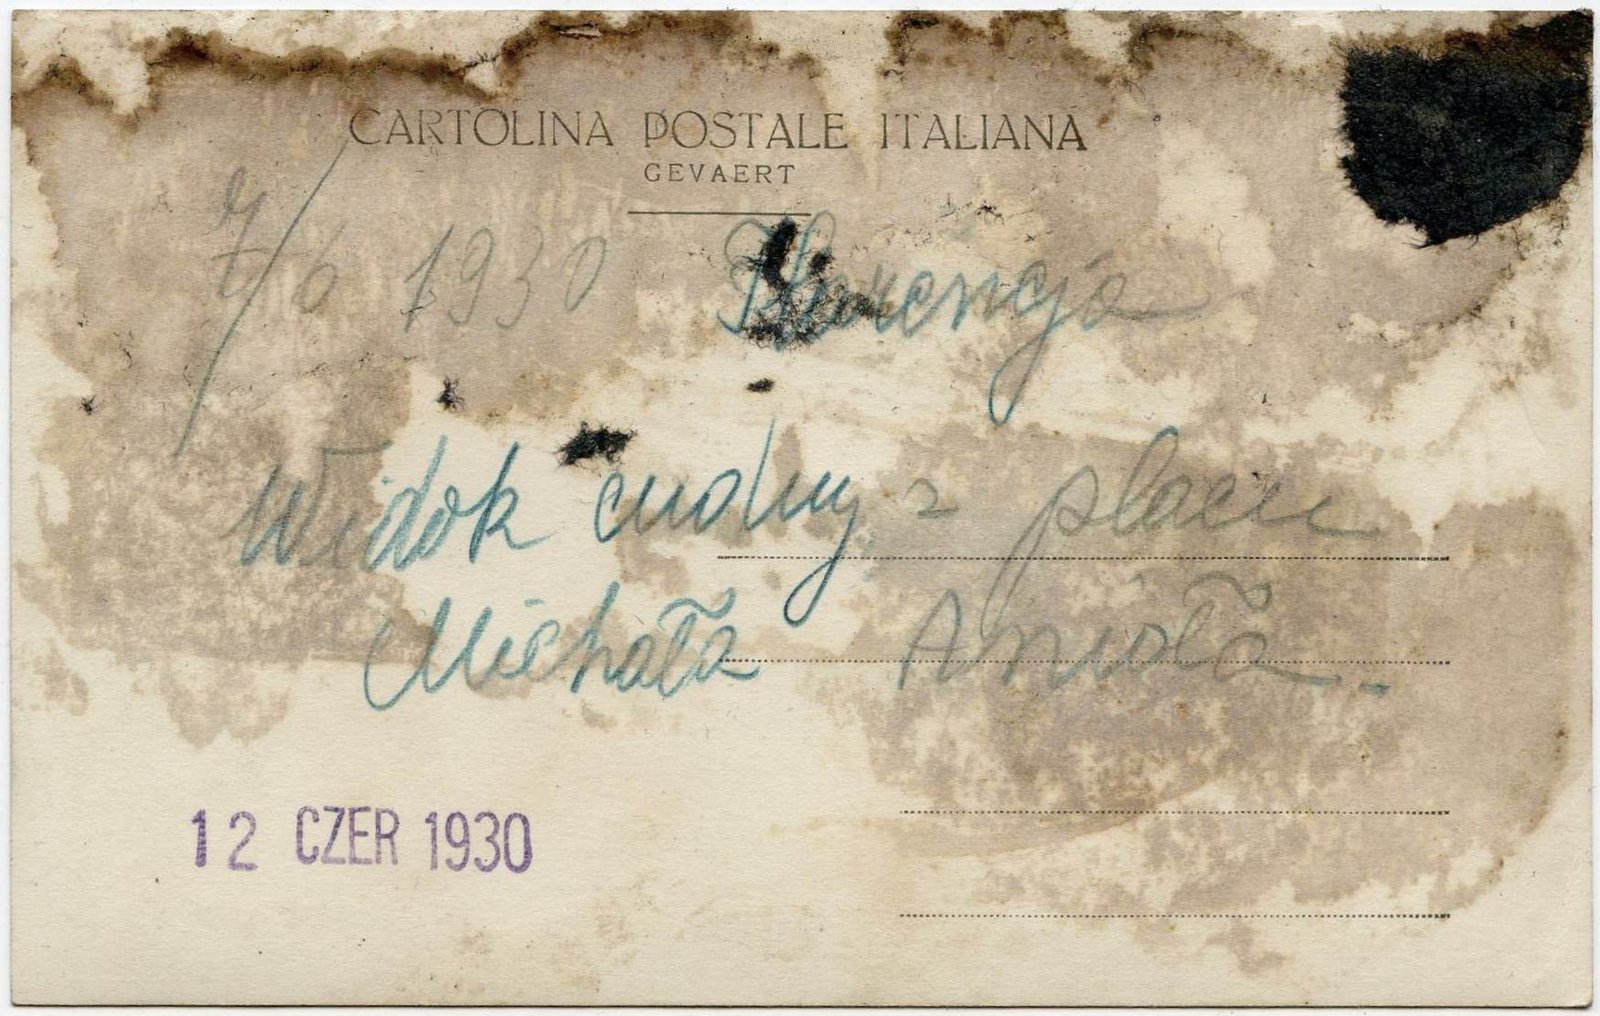 CARTOLINA POSTALE ITALIANA
GEVAERT
7/6 1930 Florencja
Widok cudny z placu
Michała Anioła
12 CZER 1930